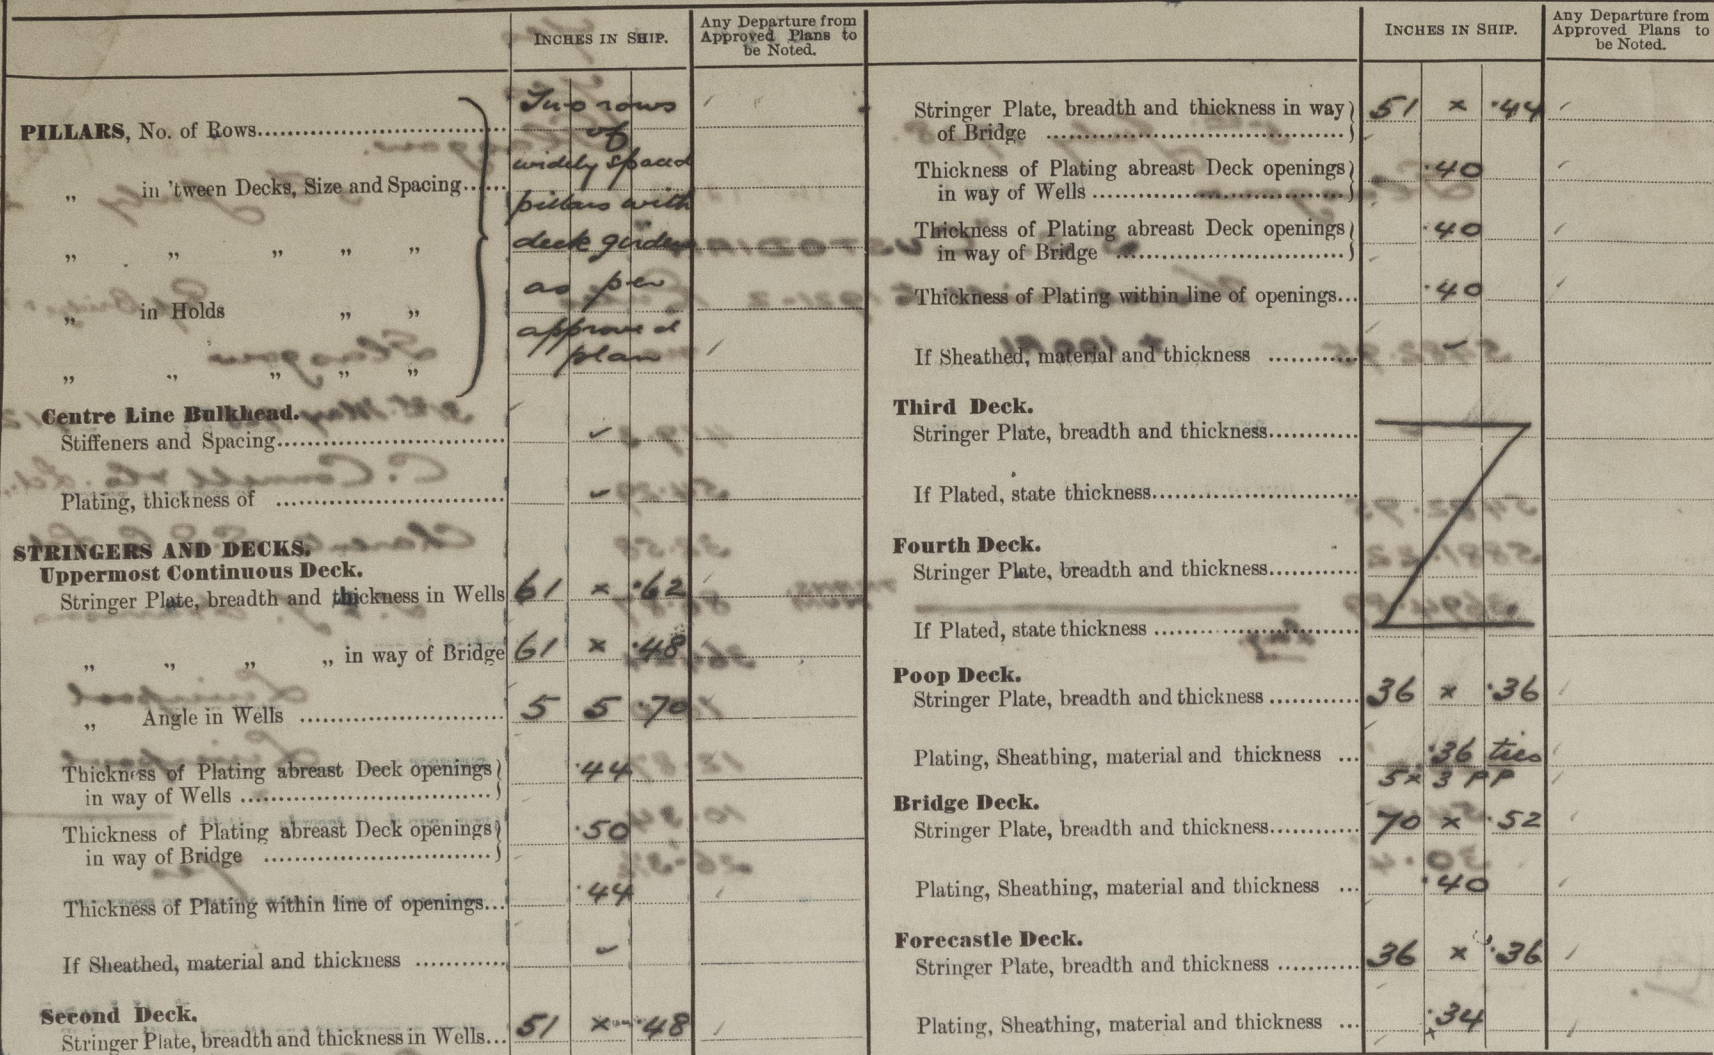 INCHES IN SHIP.
Any Departure from
Approved Plans to
be Noted.
PILLARS, No. of Rows
Two rows
of
widely spaced
„ in 'tween Decks, Size and Spacing
pillars with
„ „ „ „ „
deck girders
as per
„ in Holds „ „
approved
plan
„ „ „ „ „
Centre Line Bulkhead.
Stiffeners and Spacing
Plating, thickness of
STRINGERS AND DECKS.
Uppermost Continuous Deck.
Stringer Plate, breadth and thickness in Wells 61 × .62
„ „ „ „ in way of Bridge 61 × .48
„ Angle in Wells 5 5 .70
Thickness of Plating abreast Deck openings
in way of Wells .44
Thickness of Plating abreast Deck openings
in way of Bridge .50
Thickness of Plating within line of openings... .44
If Sheathed, material and thickness
Second Deck.
Stringer Plate, breadth and thickness in Wells... 51 × .48
INCHES IN SHIP.
Any Departure from
Approved Plans to
be Noted.
Stringer Plate, breadth and thickness in way
of Bridge 51 × .44
Thickness of Plating abreast Deck openings
in way of Wells .40
Thickness of Plating abreast Deck openings
in way of Bridge .40
Thickness of Plating within line of openings... .40
If Sheathed, material and thickness
Third Deck.
Stringer Plate, breadth and thickness
If Plated, state thickness
Fourth Deck.
Stringer Plate, breadth and thickness
If Plated, state thickness
Poop Deck.
Stringer Plate, breadth and thickness 36 × .36
Plating, Sheathing, material and thickness ... .36 ties
5 × 3 PP
Bridge Deck.
Stringer Plate, breadth and thickness 70 × .52
Plating, Sheathing, material and thickness ... .40
Forecastle Deck.
Stringer Plate, breadth and thickness 36 × .36
Plating, Sheathing, material and thickness ... .34